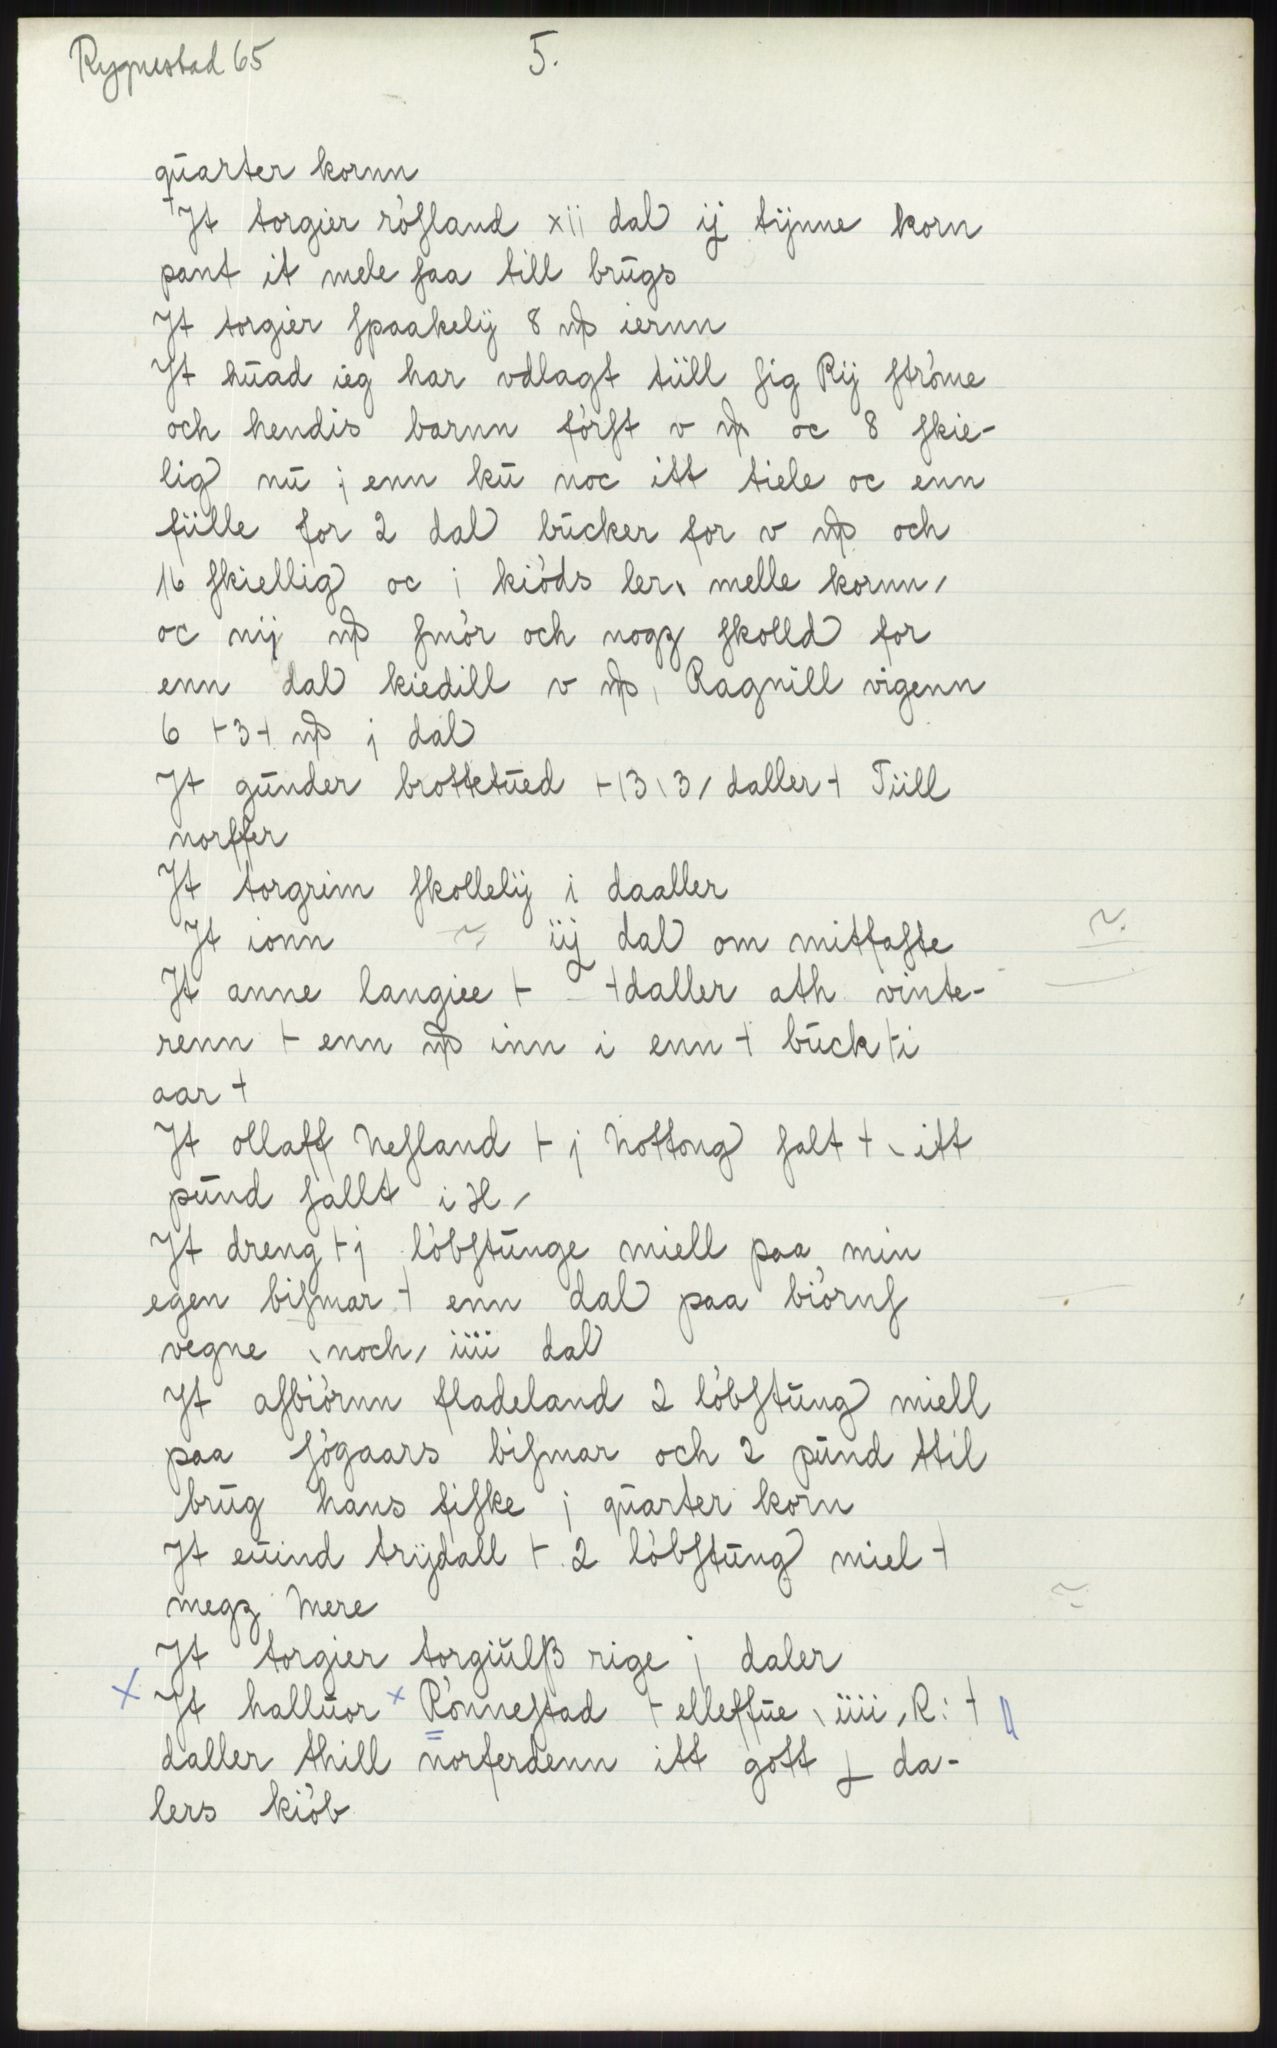 Rygnestad 65
5.
quarter kornn
It torgier röfland xii dal ij tÿnne korn
pant it mele faa till brugs
It torgier spaakelÿ 8 ℔ iernn
It huad ieg har vdlagt tüll sig Rÿ strömе
och hendis barnn först v ℔ oc 8 skie-
lig nu j enn ku noc itt tiele oc enn
fülle for 2 dal bucker for v ℔ och
16 skiellig oc j kiöds ler melle kornn
oc nij ℔ smör och nogz skolld for
enn dal kiedill v ℔ Ragnill vigenn
6 ⊢3⊣ ℔ j dal
It gunder brottetued ⊢13 \3/ daller⊣ Tüll
norffer
It torgrim skollelÿ i daaller
It ionn iij dal om mitfaste
It anne langiee ⊢ ⊣daller ath vinte-
renn ⊢ enn ℔ inn i enn ⊣ buck ⊢i
aar ⊣
It ollaff nesland ⊢ j nottong salt ⊣ \ itt
pund sallt i ol /
It dreng ⊢j löbstunge miell paa min
egen bismar ⊣ enn dal paa biörns
vegne \noch/ iiii dal
It asbiörnn fladeland 2 löbstung miell
paa sögaars bismar och 2 pund ttil
brug hans fiske j quarter korn
It euind trÿdall ⊢ 2 löbstung miel ⊣
megz mere
It torgier torgiulß rige j daler
x It halluor x Rönnestad ⊢ elleffue \ iiii / R: ⊣
daller thill norferdenn itt gott da-
lers kiöb